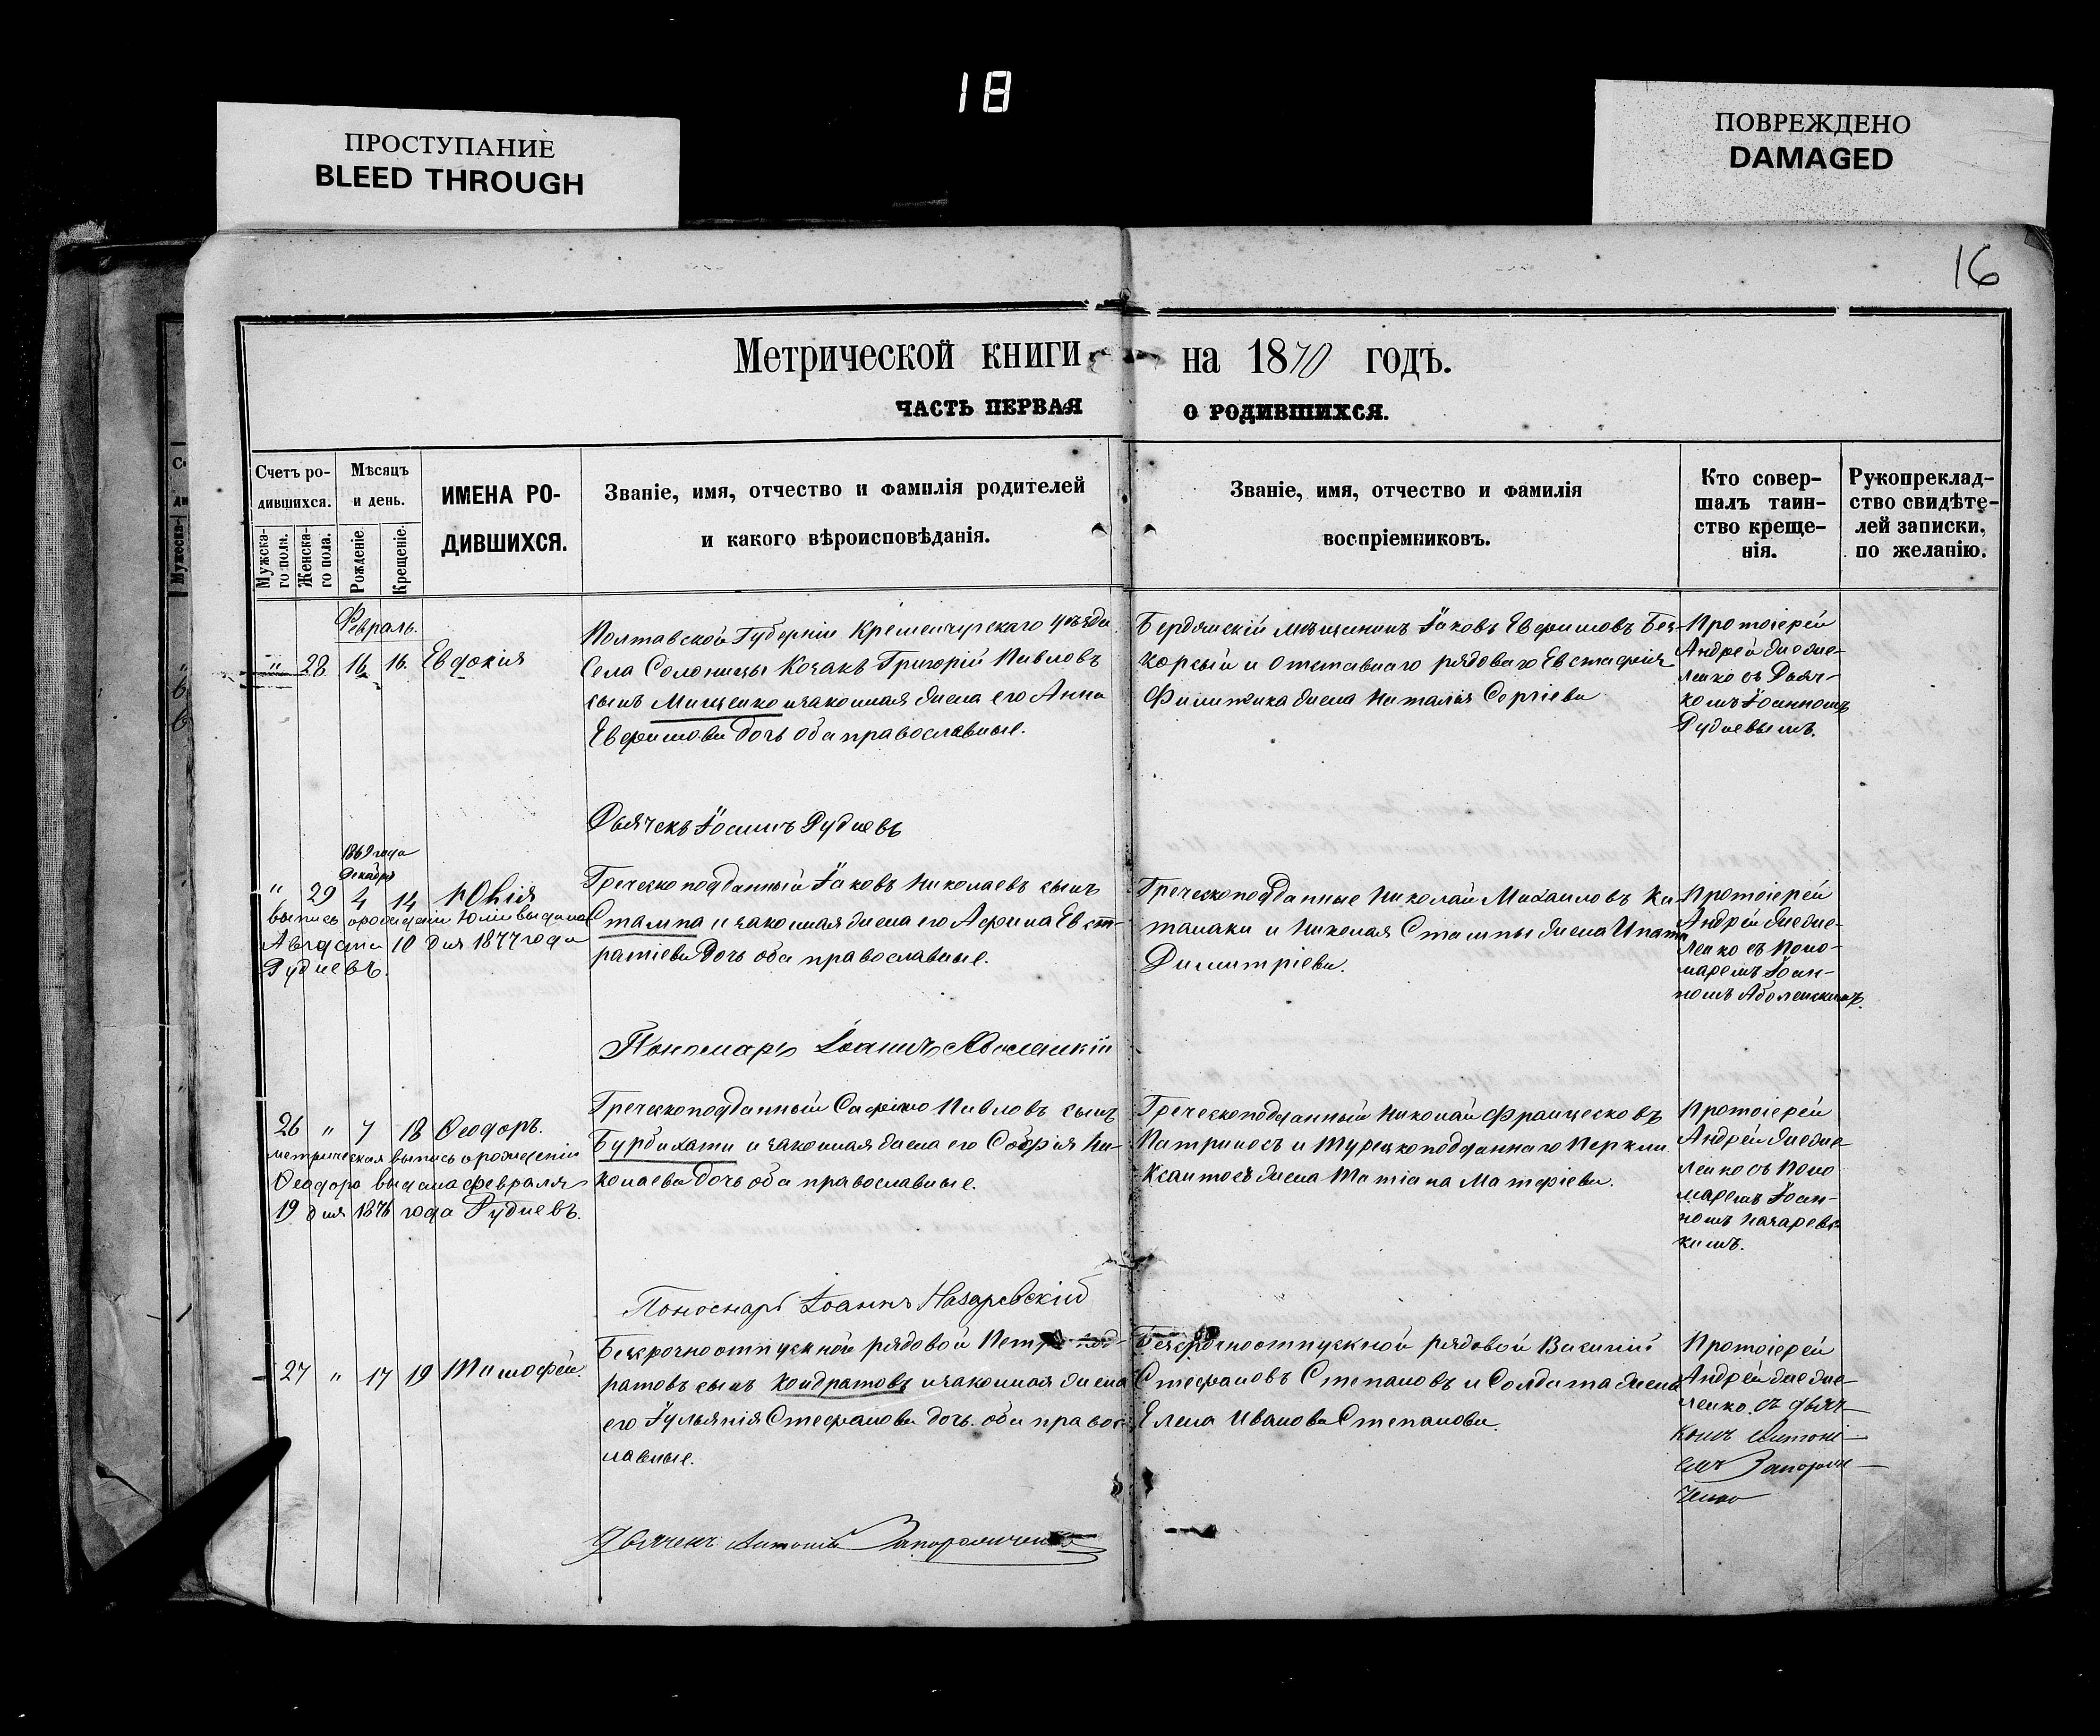 18
ПРОСТУПАНИЕ
BLEED THROUGH
ПОВРЕЖДЕНО
DAMAGED
16
Метрической книги на 1870 годъ.
ЧАСТЬ ПЕРВАЯ О РОДИВШИХСЯ.
Счетъ ро-
дившихся.
Мужска-
го пола.
Женска-
го пола.
Мѣсяцъ
и день.
Рожденіе.
Крещеніе.
ИМЕНА РО-
ДИВШИХСЯ.
Званіе, имя, отчество и фамилія родителей
и какого вѣроисповѣданія.
Званіе, имя, отчество и фамилія
воспріемниковъ.
Кто совер-
шалъ таин-
ство креще-
нія.
Рукопреклад-
ство свидѣте-
лей записки,
по желанію.
Февраль.
" 28 16 16. Евдокия
Полтавской Губерніи Кременчугскаго уѣзда
Села Солоницы Козакъ Григорій Павловъ
сынъ Мищенко и законная жена его Анна
Евфимова дочь оба православные.
Бердянскій мѣщанинъ Іаковъ Евфимовъ
и отставнаго рядоваго Евстафія
жена Наталья Сергіева
Протоіерей
Андрей
ленко съ Дьяч-
комъ Іоанномъ
Рудневымъ.
Дьячекъ Іоаннъ Рудневъ
1869 года
Декабря
" 29 4 14 Юлія
выпись о рожденіи Юліи выдана
Августа 10 дня 1877 года
Рудневъ.
Греческоподданный Іаковъ Николаевъ сынъ
Стампа и законная жена его Афина Евст-
ратіева дочь оба православные.
Греческоподданные Николай Михаиловъ Ка-
танаки и Николая Стампы жена
Димитріева.
Протоіерей
Андрей
ленко съ Поно-
маремъ Іоан-
номъ
Пономарь Іоаннъ
26 " 7 18 Феодоръ.
метрическая выпись о рожденіи
Феодора выдана февраля
19 дня 1876 года Рудневъ.
Греческоподданный Павловъ сынъ
и законная жена его Софія Ни-
колаева дочь оба православные.
Греческоподданный Николай Францесковъ
Патриносъ и Турецкоподданнаго
жена Татіана Матфіева.
Протоіерей
Андрей
ленко съ Поно
маремъ Іоан-
номъ Назаревс-
кимъ.
Пономарь Іоаннъ Назаревскій
27 " 17 19 Тимофей.
Безсрочноотпускной рядовой Петръ Конд-
ратовъ сынъ Кондратовъ и законная жена
его Іульянія Стефанова дочь. оба правос-
лавные.
Безсрочноотпускной рядовой Василий
Стефановъ Степановъ и Солдата жена
Елена Иванова Степанова.
Протоіерей
Андрей
ленко. съ дьяч-
комъ Антоні-
емъ Запорож-
ченко
Дьячекъ Антоній Запорожченко